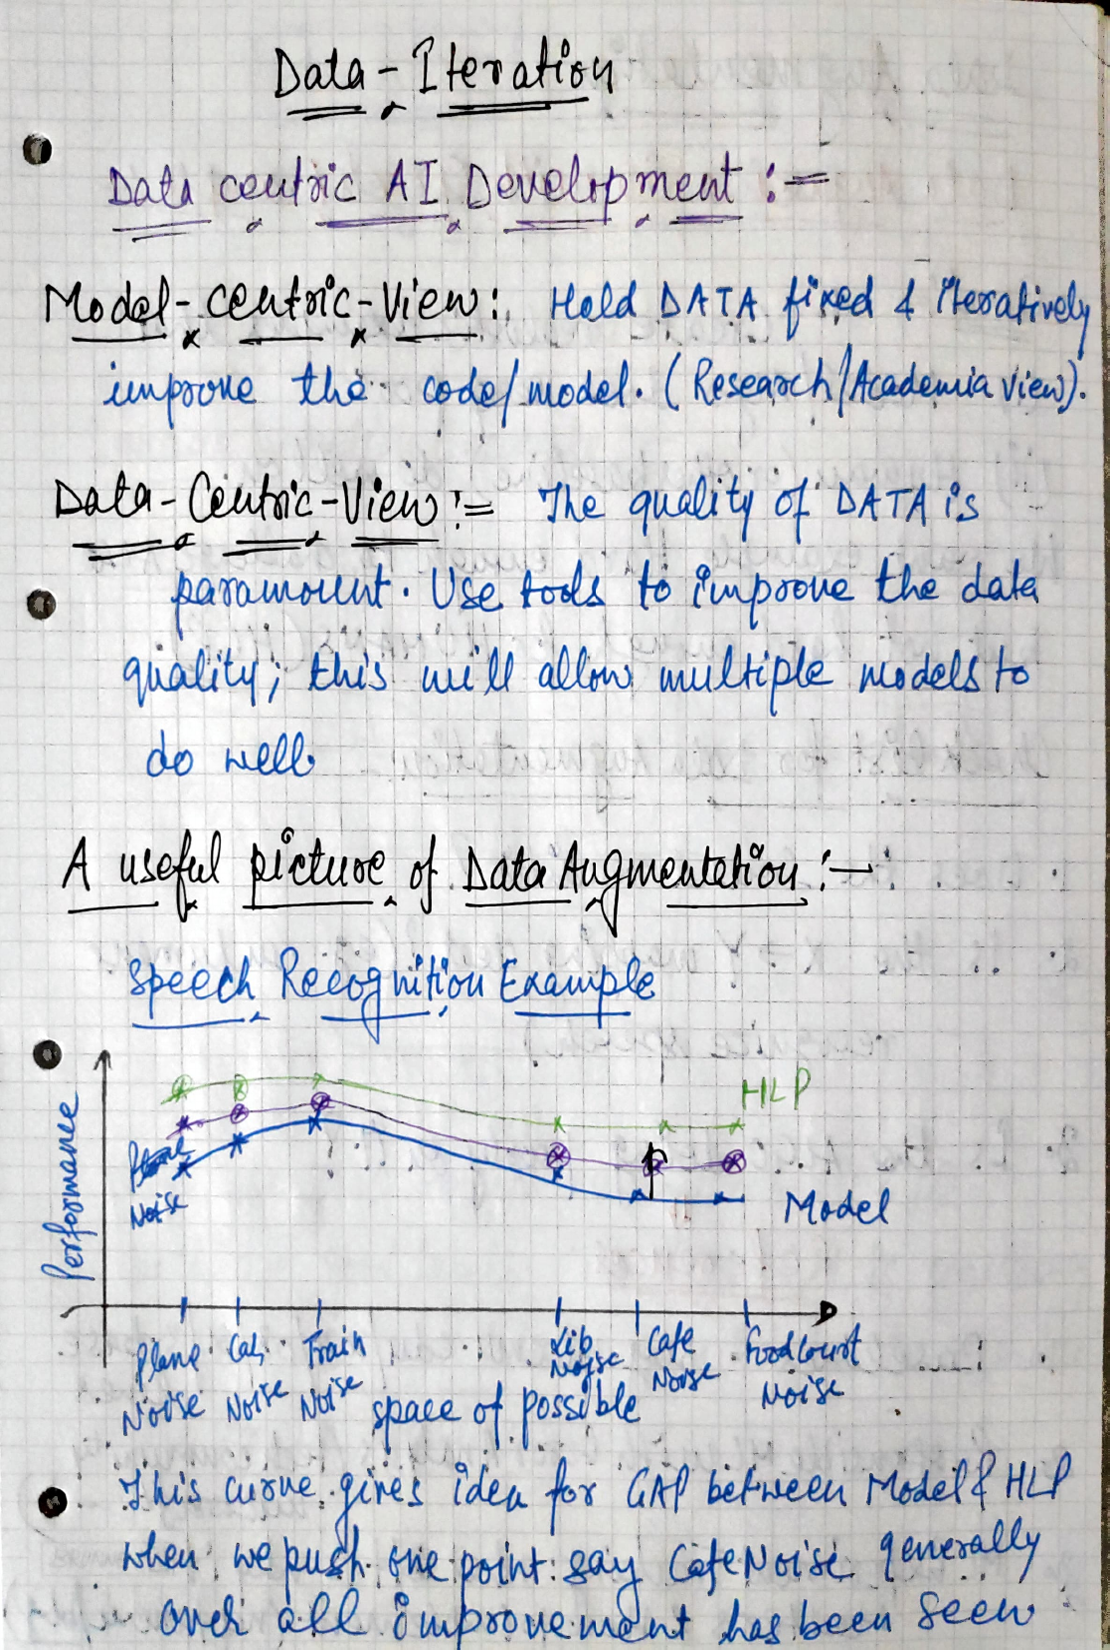 Data - Iteration
Data centric AI Development :=
Model - centric - View : Hold DATA fixed & iteratively
improve the code/model. (Research/Academia view).
Data - Centric - View := The quality of DATA is
paramount. Use tools to improve the data
quality; this will allow multiple models to
do well
A useful picture of Data Augmentation :-
Speech Recognition Example
HLP
Performance
Noise
Model
Plane Noise
Car Noise
Train Noise
Lib Noise
Cafe Noise
Food Court Noise
space of possible
This curve gives idea for GAP between Model & HLP
when we push one point say Cafe Noise generally
over all improvement has been seen